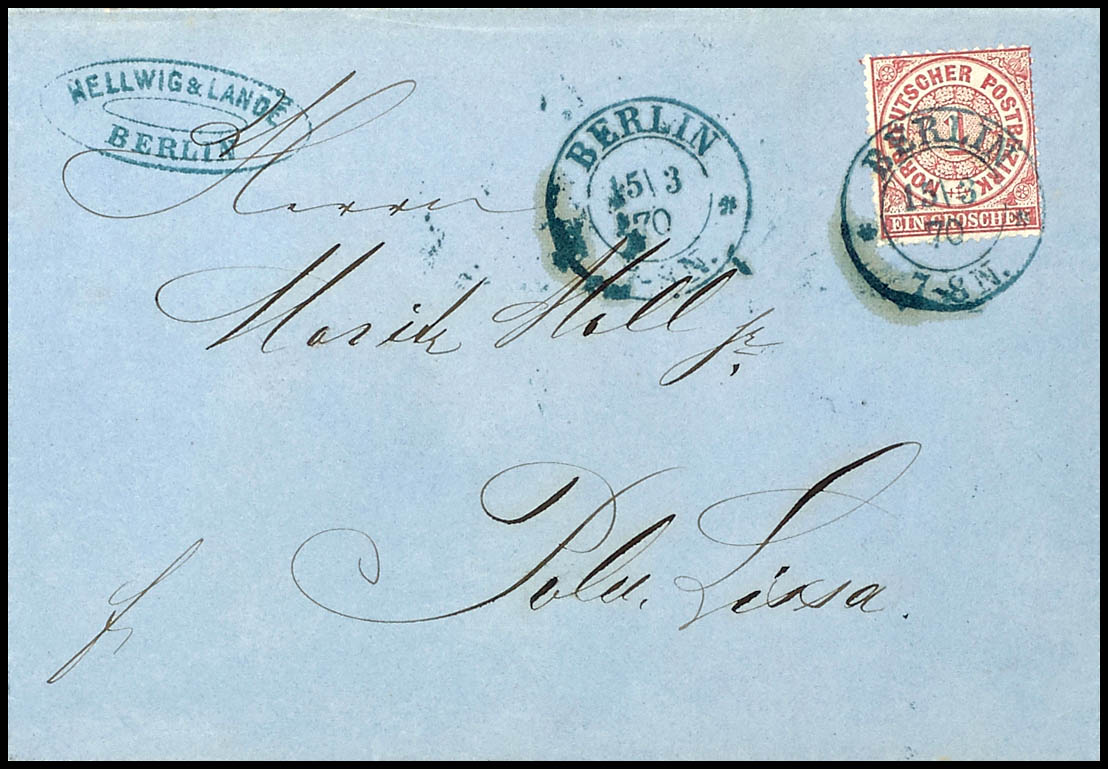 HELLWIG & LANDE
BERLIN
BERLIN
15 | 3
70
7-8 N.
NORDDEUTSCHER POSTBEZIRK
1
EIN GROSCHEN
BERLIN
15 | 3
70
7-8 N.
Herrn
Moritz Moll jr.
Poln. Lissa.